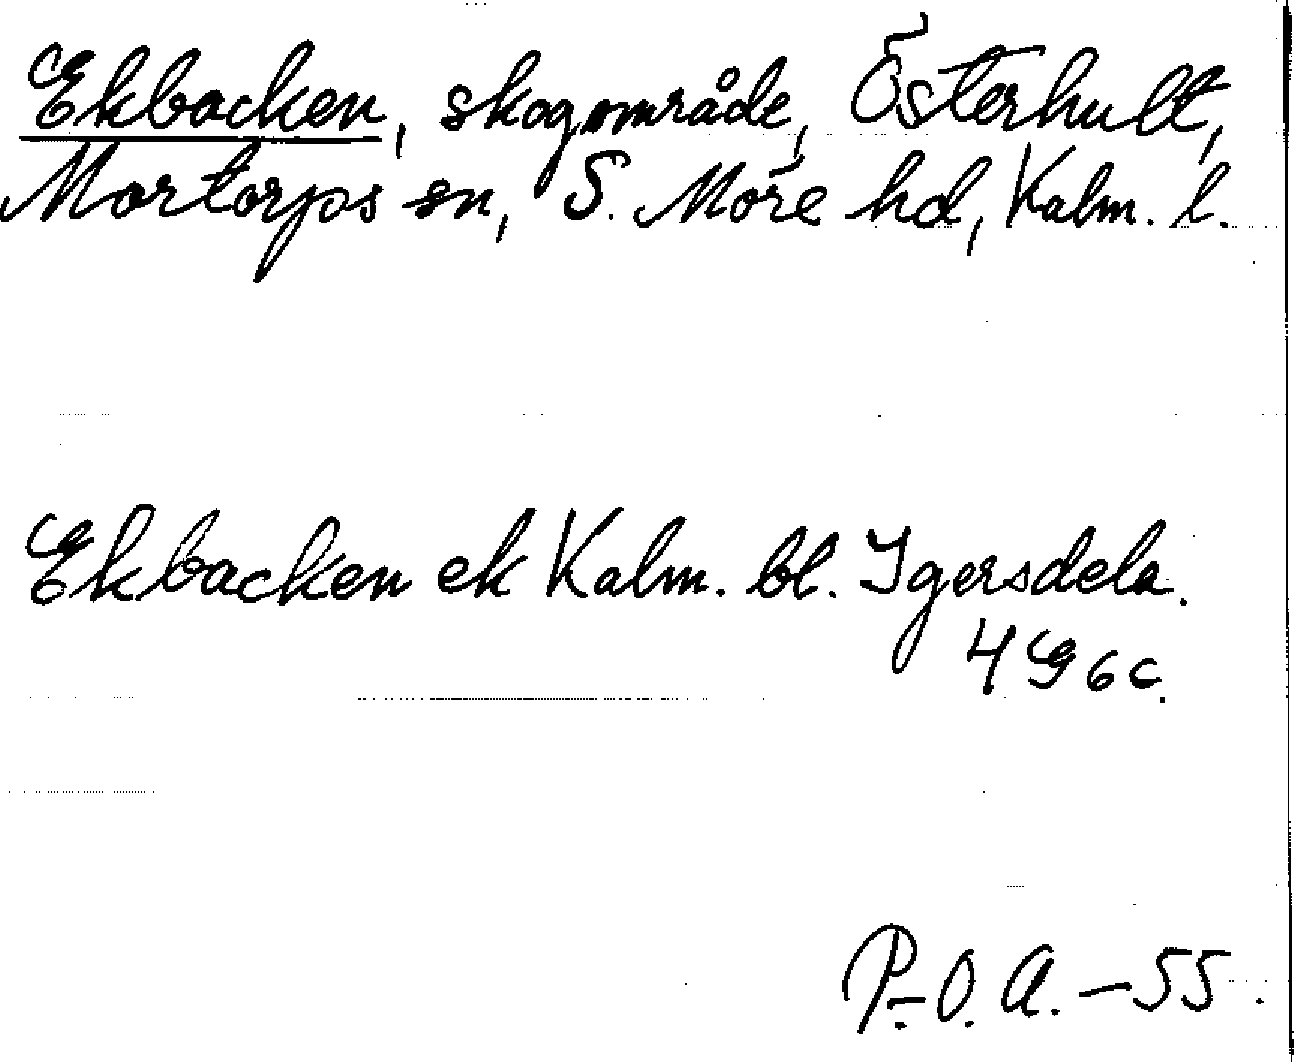 Ekbacken, skogområde, Österhult,
Mortorps sn, S. Möre hd, Kalm. l.
Ekbacken ek Kalm. bl. Igersdela.
4 G 6 c.
P.-O. A. - 55.